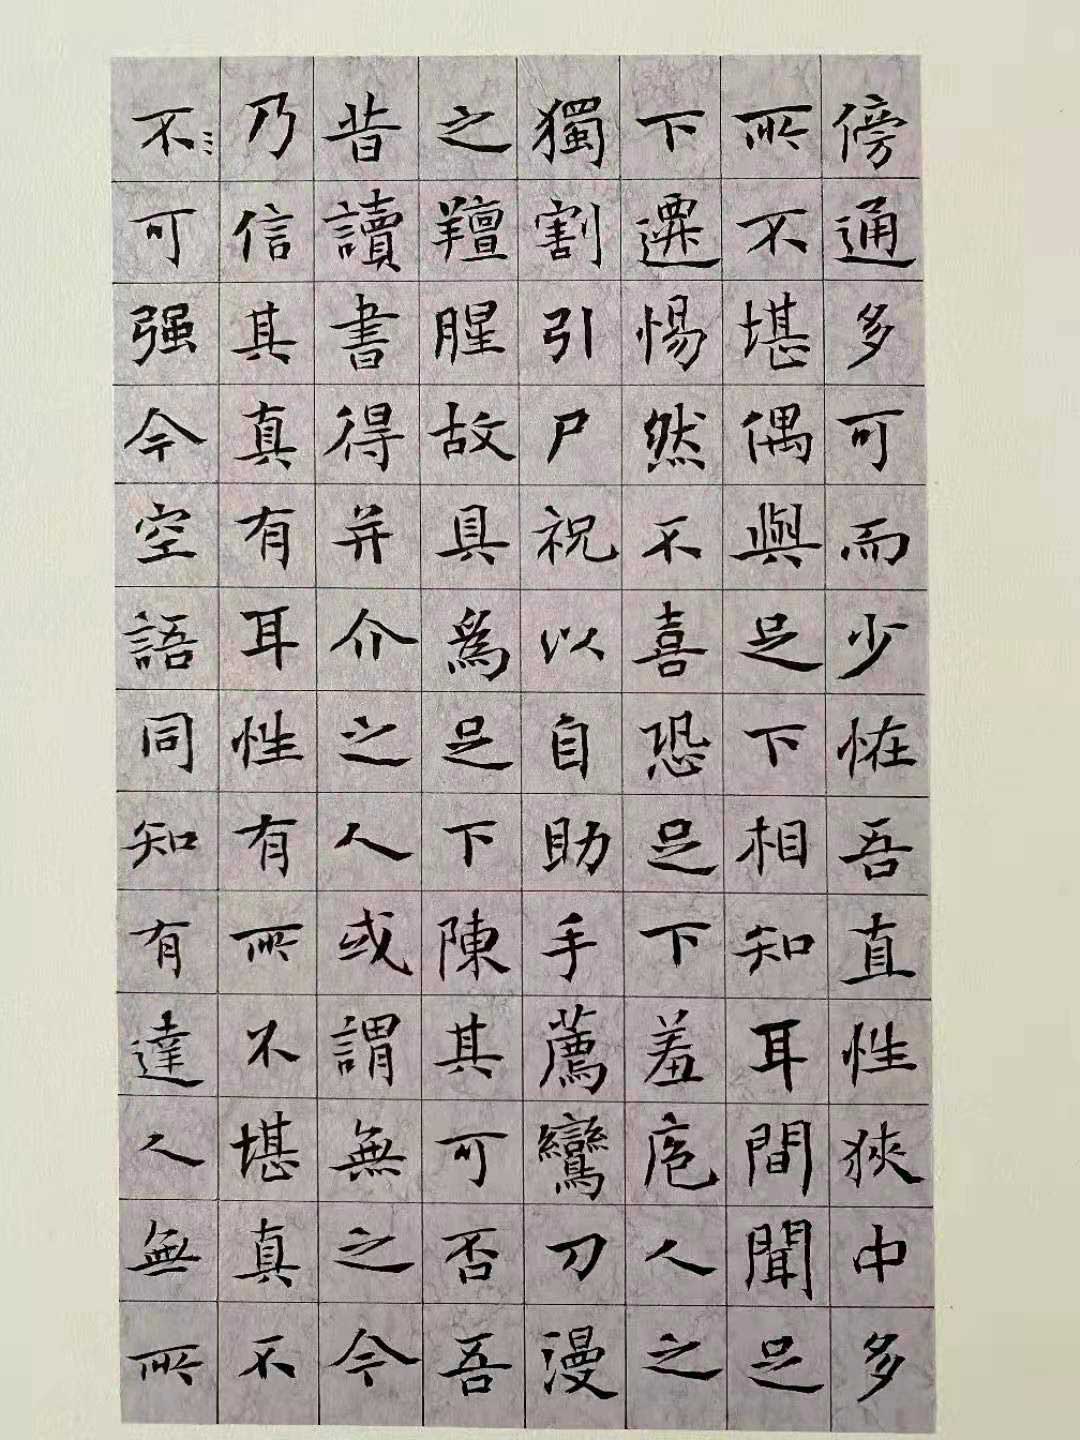 傍通多可而少恠吾直性狹中多
所不堪偶與足下相知耳間聞足
下遷惕然不喜恐足下羞庖人之
獨割引尸祝以自助手薦鸞刀漫
之羶腥故具爲足下陳其可否吾
昔讀書得并介之人或謂無之今
乃信其真有耳性有所不堪真不
不可强今空語同知有達人無所